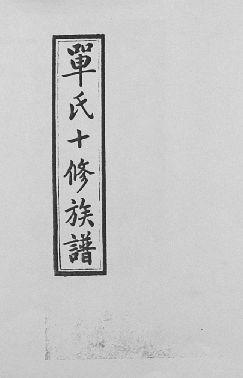 單氏十修族譜